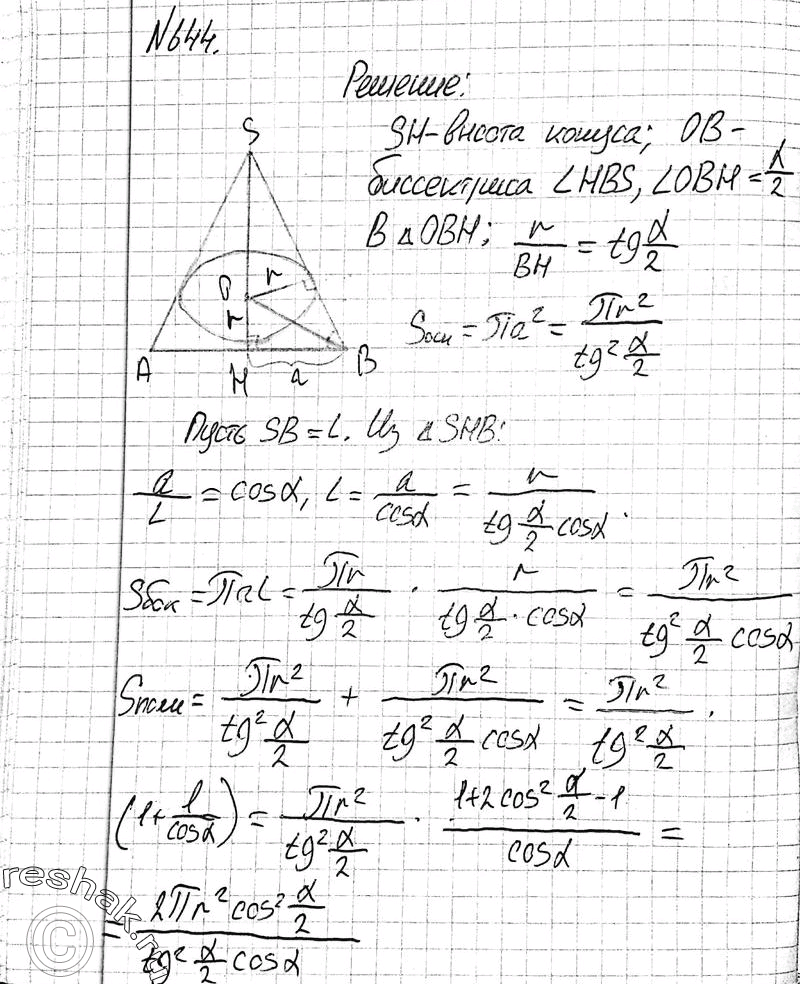 N644.
Решение:
SH-высота конуса; OB-
биссектриса ∠HBS, ∠OBH = α/2
В △OBH; r/BH = tg α/2
Sосн = πa² = πr²/tg² α/2
S
O
r
r
A
H
a
B
Пусть SB = L. Из △SHB:
a/L = cosα, L = a/cosα = r/(tg α/2 cosα).
Sбок = πaL = πr/tg α/2 · r/(tg α/2 · cosα) = πr²/(tg² α/2 cosα)
Sполн = πr²/tg² α/2 + πr²/(tg² α/2 cosα) = πr²/tg² α/2 ·
(1 + 1/cosα) = πr²/tg² α/2 · (1+2cos² α/2 -1)/cosα =
= 2πr² cos² α/2 / (tg² α/2 cosα)
reshak.ru
©